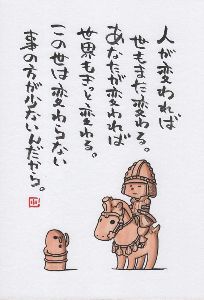 人が変われば
世もまた変わる。
あなたが変われば
世界もきっと、変わる。
この世は変わらない
事の方が少ないんだから。